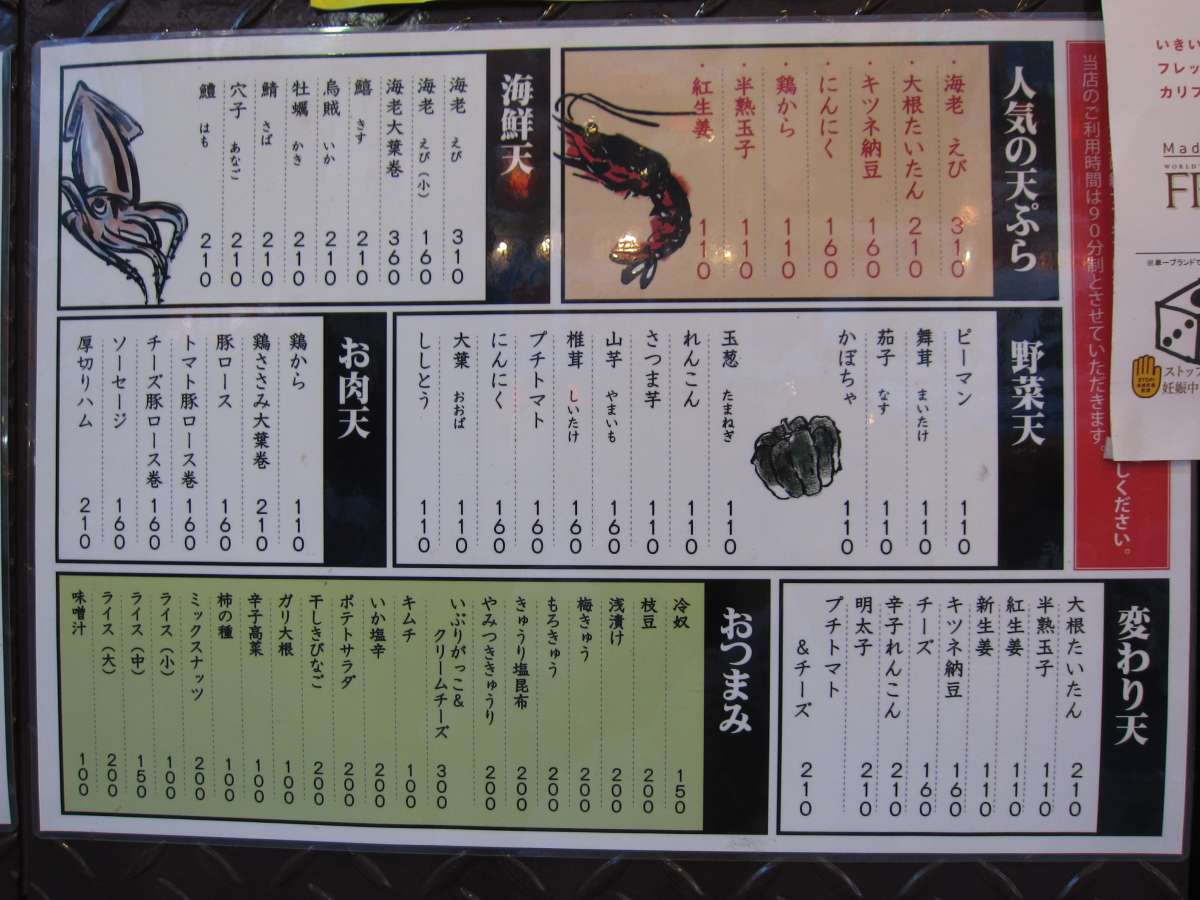 人気の天ぷら
・海老 えび 310
・大根たいたん 210
・キツネ納豆 160
・にんにく 160
・鶏から 110
・半熟玉子 110
・紅生姜 110
海鮮天
海老 えび 310
海老 えび(小) 160
海老大葉巻 360
鱚 きす 210
烏賊 いか 210
牡蠣 かき 210
鯖 さば 210
穴子 あなご 210
鱧 はも 210
野菜天
ピーマン 110
舞茸 まいたけ 110
茄子 なす 110
かぼちゃ 110
玉葱 たまねぎ 110
れんこん 110
さつま芋 110
山芋 やまいも 160
椎茸 しいたけ 160
プチトマト 160
にんにく 160
大葉 おおば 110
ししとう 110
お肉天
鶏から 110
鶏ささみ大葉巻 210
豚ロース 160
トマト豚ロース巻 160
チーズ豚ロース巻 160
ソーセージ 160
厚切りハム 210
変わり天
大根たいたん 210
半熟玉子 110
紅生姜 110
新生姜 110
キツネ納豆 160
チーズ 160
辛子れんこん 210
明太子 210
プチトマト
&チーズ 210
おつまみ
冷奴 150
枝豆 200
浅漬け 200
梅きゅう 200
もろきゅう 200
きゅうり塩昆布 200
やみつききゅうり 200
いぶりがっこ&
クリームチーズ 300
キムチ 100
いか塩辛 200
ポテトサラダ 200
干しきびなご 200
ガリ大根 100
辛子高菜 100
柿の種 100
ミックスナッツ 200
ライス(小) 100
ライス(中) 150
ライス(大) 200
味噌汁 100
しください。
当店のご利用時間は90分制とさせていただきます。
いきい
フレッ
カリフ
Mad
WORLD
FI
※単一ブランドで
STOP!
ストッフ
妊娠中